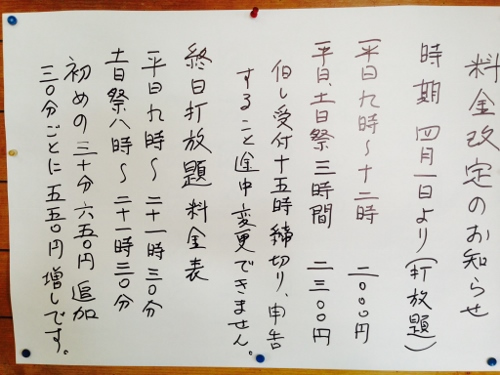 料金改定のお知らせ
時期 四月一日より(打放題)
平日九時~十二時 二〇〇〇円
平日、土日祭三時間 二三〇〇円
但し受付十五時締切り、申告
すること途中変更できません。
終日打放題 料金表
平日九時~二十一時三〇分
土日祭八時~二十一時三〇分
初めの三十分六五〇円 追加
三〇分ごとに五五〇円増しです。